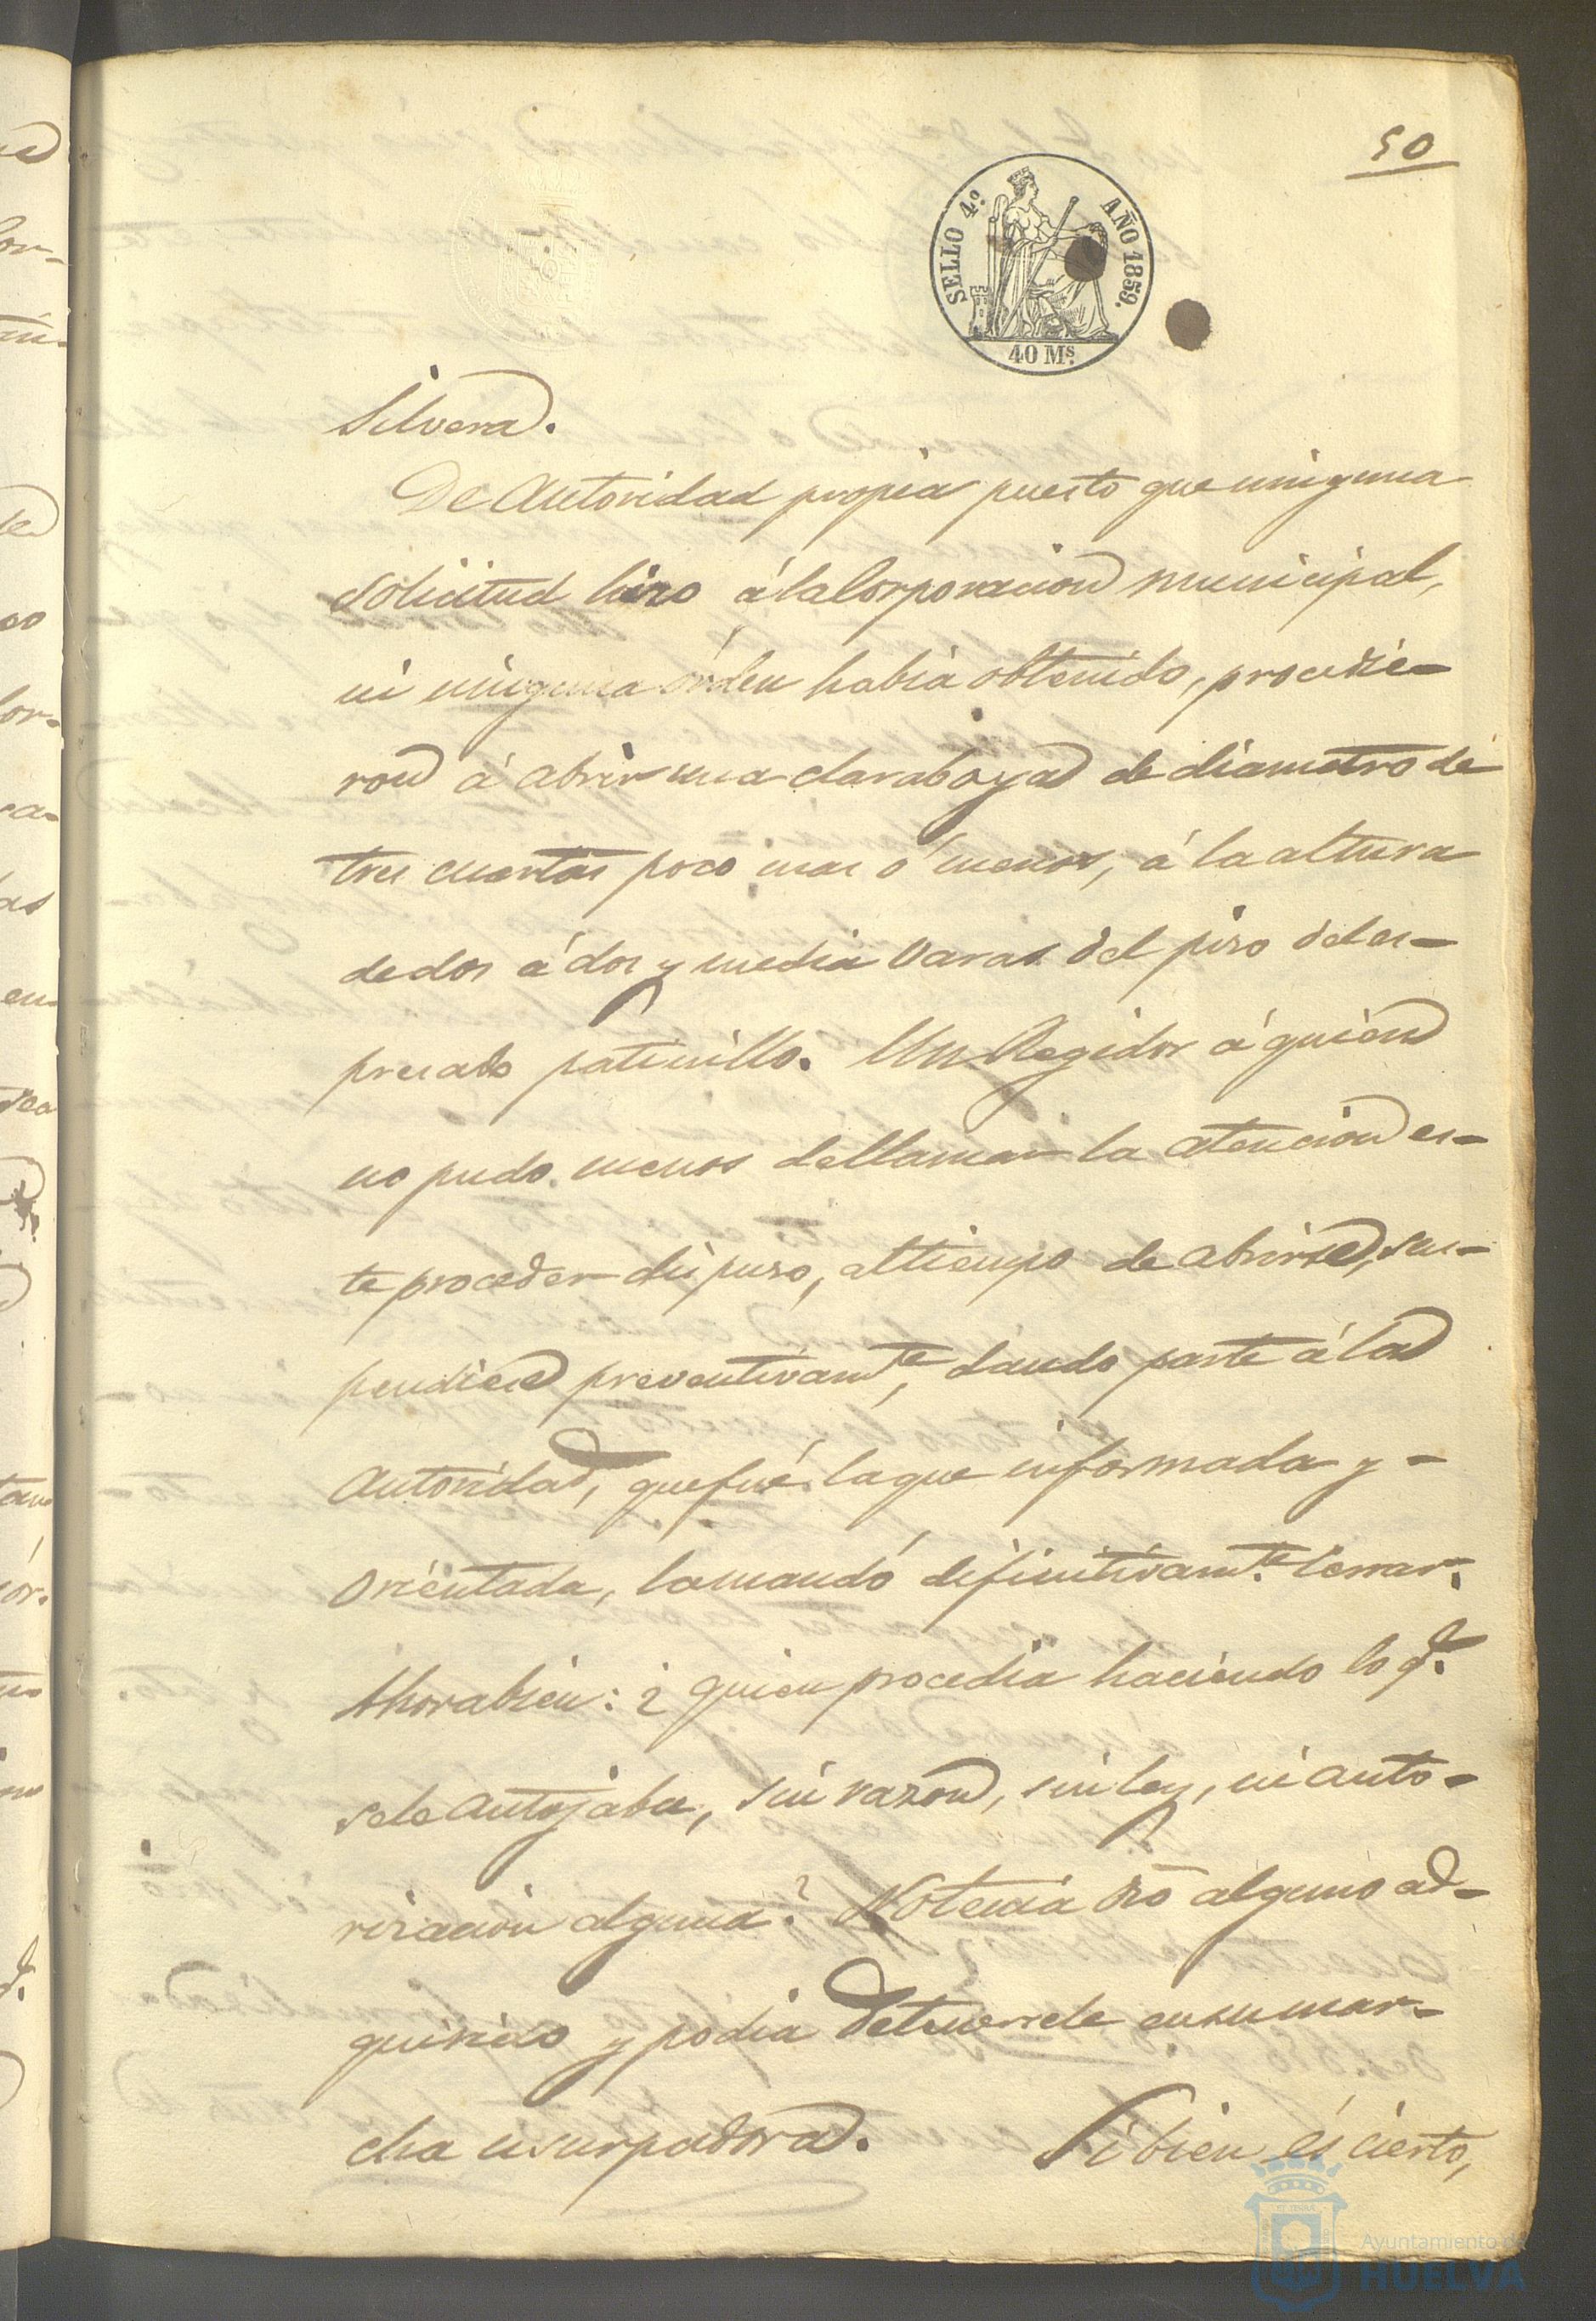 50
SELLO 4.º AÑO 1859.
40 Ms.
Silvera.
De Autoridad propia puesto que ninguna
solicitud hizo á la Corporacion municipal,
ni ninguna órden habia obtenido, procedie-
ron á abrir una claraboya de diametro de
tres cuartas poco mas ó menos, á la altura
de dos á dos y media varas del piso del es-
presado patinillo. Un Regidor á quien
no pudo menos de llamar la atencion es-
te proceder dispuso, al tiempo de abrirse, sus-
pendiese preventivamte, dando parte á la
Autoridad, que fué la que informada y -
orientada, la mandó difinitivamte. Cerrar.
Ahora bien: ¿ quien procedia haciendo lo q.e
se le antojaba, sin razon, sin ley, ni auto-
rizacion alguna? No tenia dro alguno ad-
quirido y podia detenersele en su mar-
cha usurpadora. Si bien és cierto,
Ayuntamiento de
HUELVA